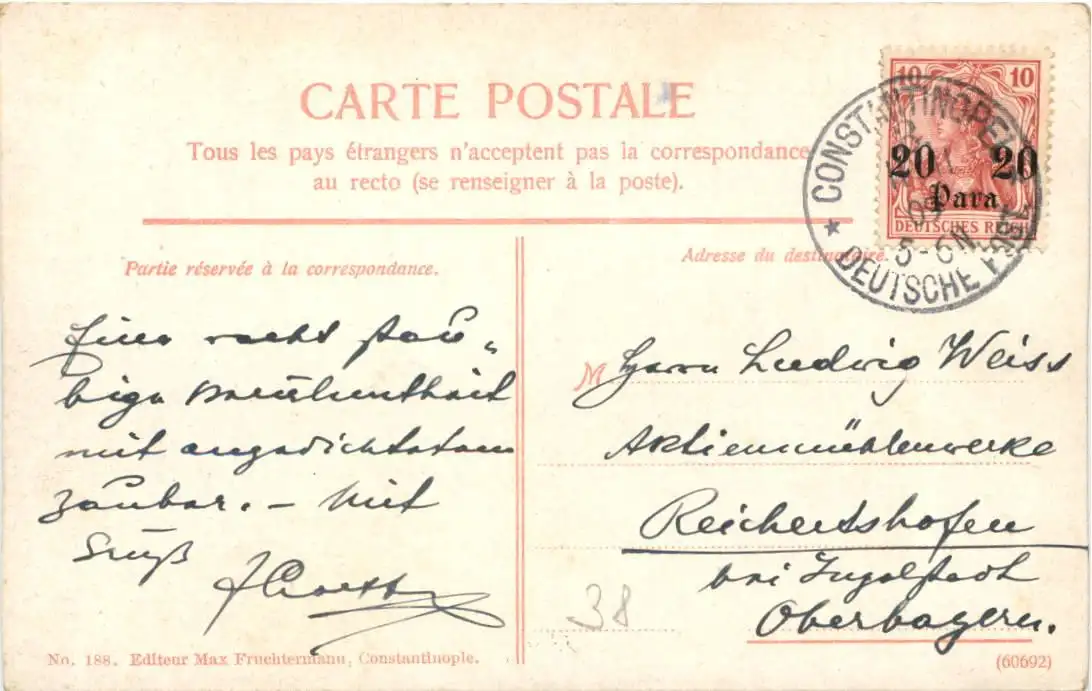 CARTE POSTALE
Tous les pays étrangers n'acceptent pas la correspondance
au recto (se renseigner à la poste).
10 10
20 20
Para
DEUTSCHES REICH
CONSTANTINOPEL 1
09
5-6N.
DEUTSCHE POST
Partie réservée à la correspondance.
Adresse du destinataire.
Eine recht stau„
bige Berühmtheit
mit angedichtetem
Zauber. – Mit
Gruß
M Herrn Ludwig Weiss
Aktienmühlenwerke
Reichertshofen
bei Ingolstadt
Oberbayern.
38
No. 188. Editeur Max Fruchtermann, Constantinople.
(60692)